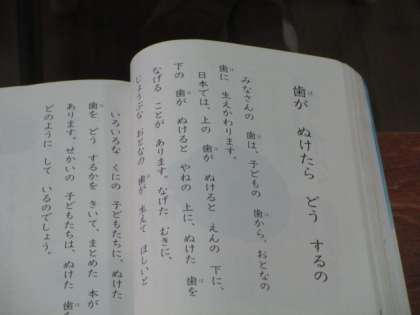 歯が ぬけたら どう するの
みなさんの 歯は、子どもの 歯から、おとなの
歯に 生えかわります。
日本では、上の 歯が ぬけると えんの 下に、
下の 歯が ぬけると やねの 上に、ぬけた 歯を
なげる ことが あります。なげた むきに、
じょうぶな おとなの 歯が 生えて ほしいと
いろいろな くにの 子どもたちに、ぬけた
歯を どう するかを きいて、まとめた 本が
あります。せかいの 子どもたちは、ぬけた 歯を
どのように して いるのでしょう。